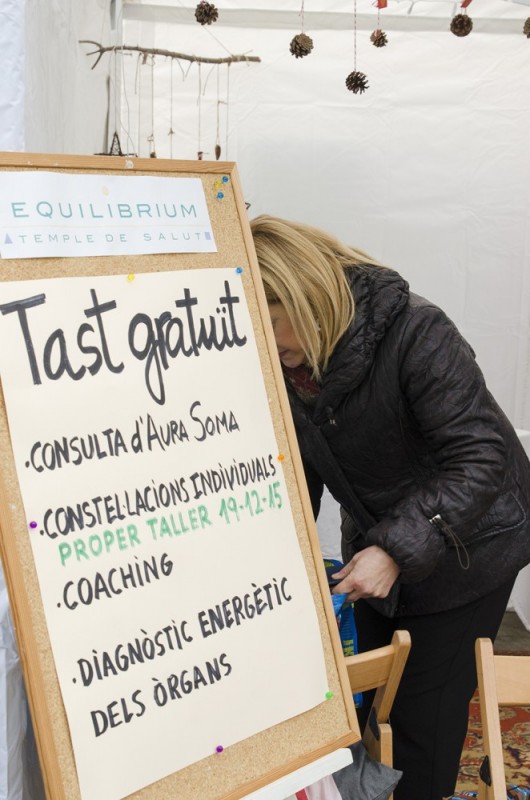 EQUILIBRIUM
TEMPLE DE SALUT
Tast gratuït
·CONSULTA d'AURA SOMA
·CONSTEL·LACIONS INDIVIDUALS
PROPER TALLER 19-12-15
·COACHING
·DIAGNÒSTIC ENERGÈTIC
DELS ÒRGANS